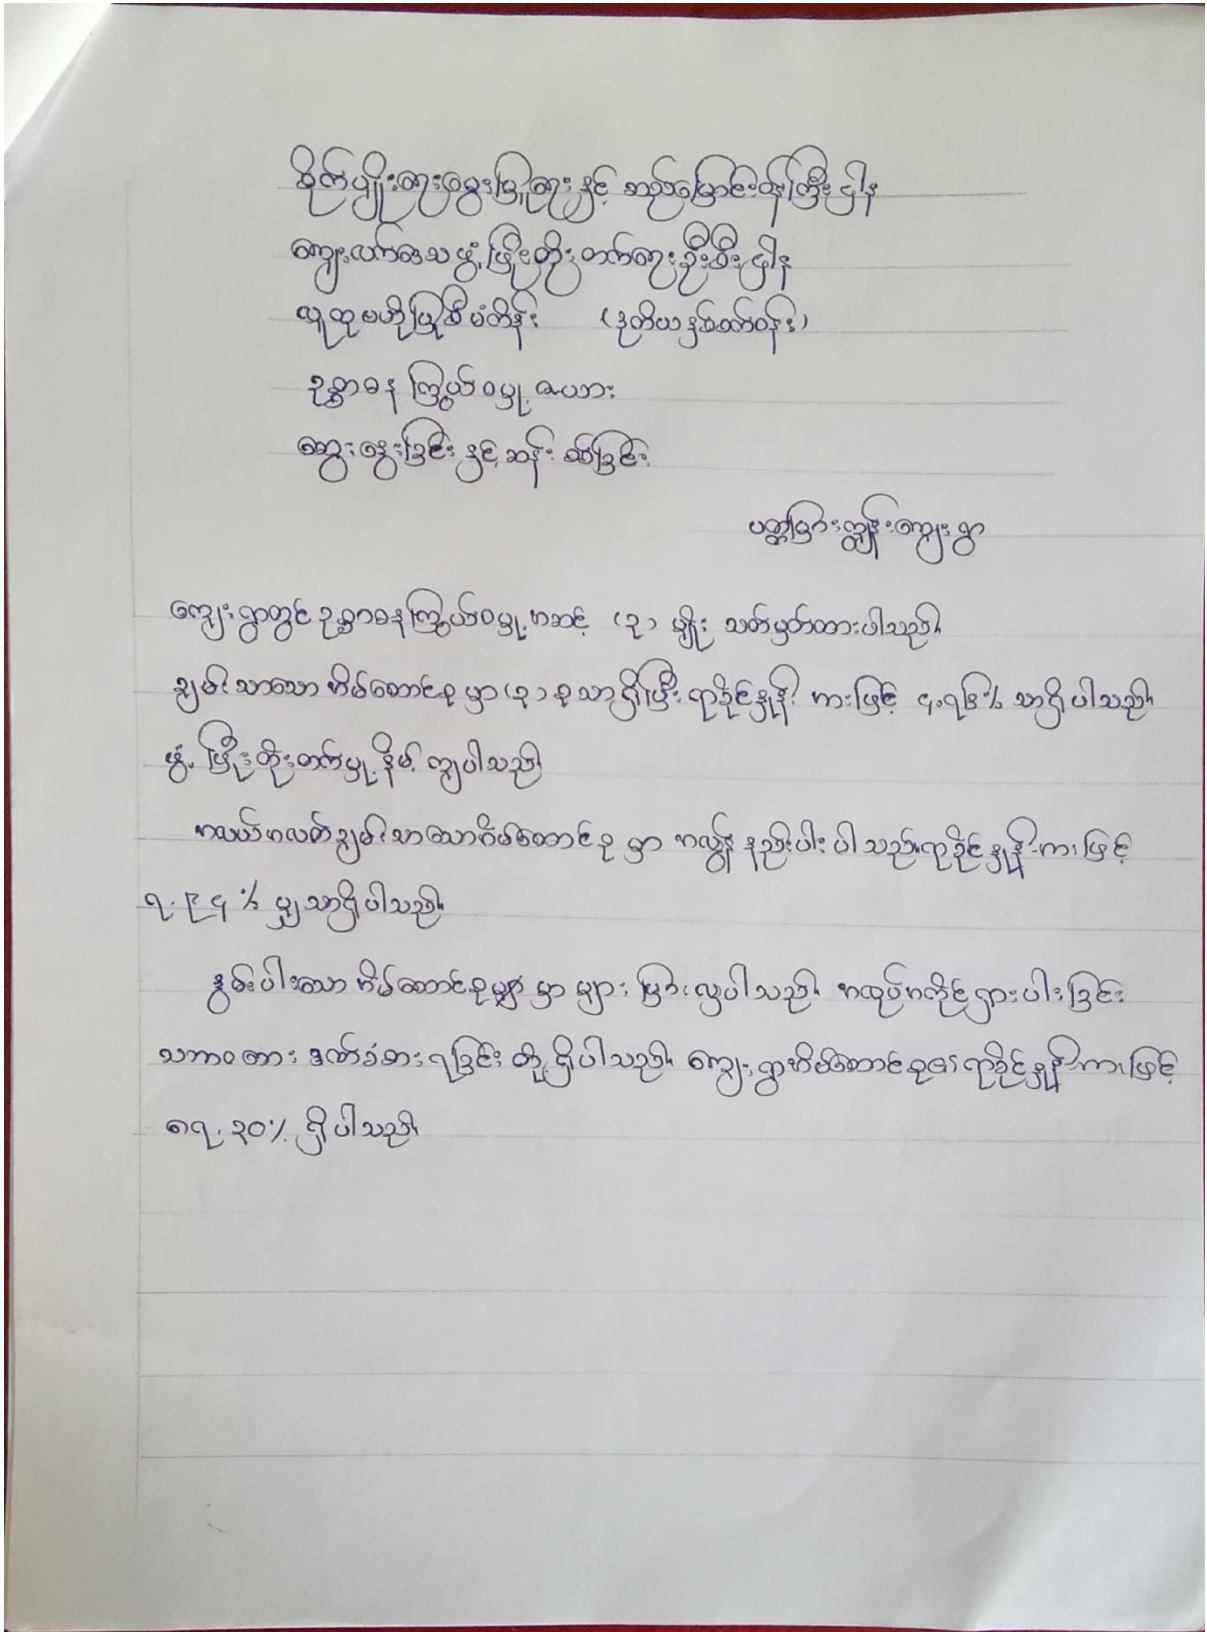 စိုက်ပျိုးရေးမွေးမြူရေးနှင့် ဆည်မြောင်းဝန်ကြီးဌာန
ကျေးလက်ဒေသဖွံ့ဖြိုးတိုးတက်ရေးဦးစီးဌာန
လူထုဗဟိုပြုစီမံကိန်း (ဒုတိယနှစ်ဝက်ဝန်း)
ဥစ္စာဓန ကြွယ်ဝမှု ဇယား
ဆွေးနွေးခြင်း နှင့် ဆန်းစစ်ခြင်း
ပတ္တမြားကျွန်းကျေးရွာ
ကျေးရွာတွင် ဥစ္စာဓနကြွယ်ဝမှုအဆင့် (၃) မျိုး သတ်မှတ်ထားပါသည်။
ချမ်းသာသော အိမ်ထောင်စု မှာ (၃) စုသာရှိပြီး ရာခိုင်နှုန်း အားဖြင့် ၄.၇၆% သာရှိပါသည်။
ဖွံ့ဖြိုးတိုးတက်မှု နိမ့်ကျပါသည်။
အလယ်အလတ်ချမ်းသာသောအိမ်ထောင်စု မှာ အလွန် နည်းပါးပါသည်။ရာခိုင်နှုန်းအားဖြင့်
၇.၉၄% မျှသာရှိပါသည်။
နွမ်းပါးသော အိမ်ထောင်စုများ မှာ များပြားလှပါသည်။ အလုပ်အကိုင်ရှားပါးခြင်း
သဘာဝဘေးဒဏ်ခံစားရခြင်း တို့ရှိပါသည်။ ကျေးရွာအိမ်ထောင်စု၏ ရာခိုင်နှုန်းအားဖြင့်
၈၇.၃၀% ရှိပါသည်။